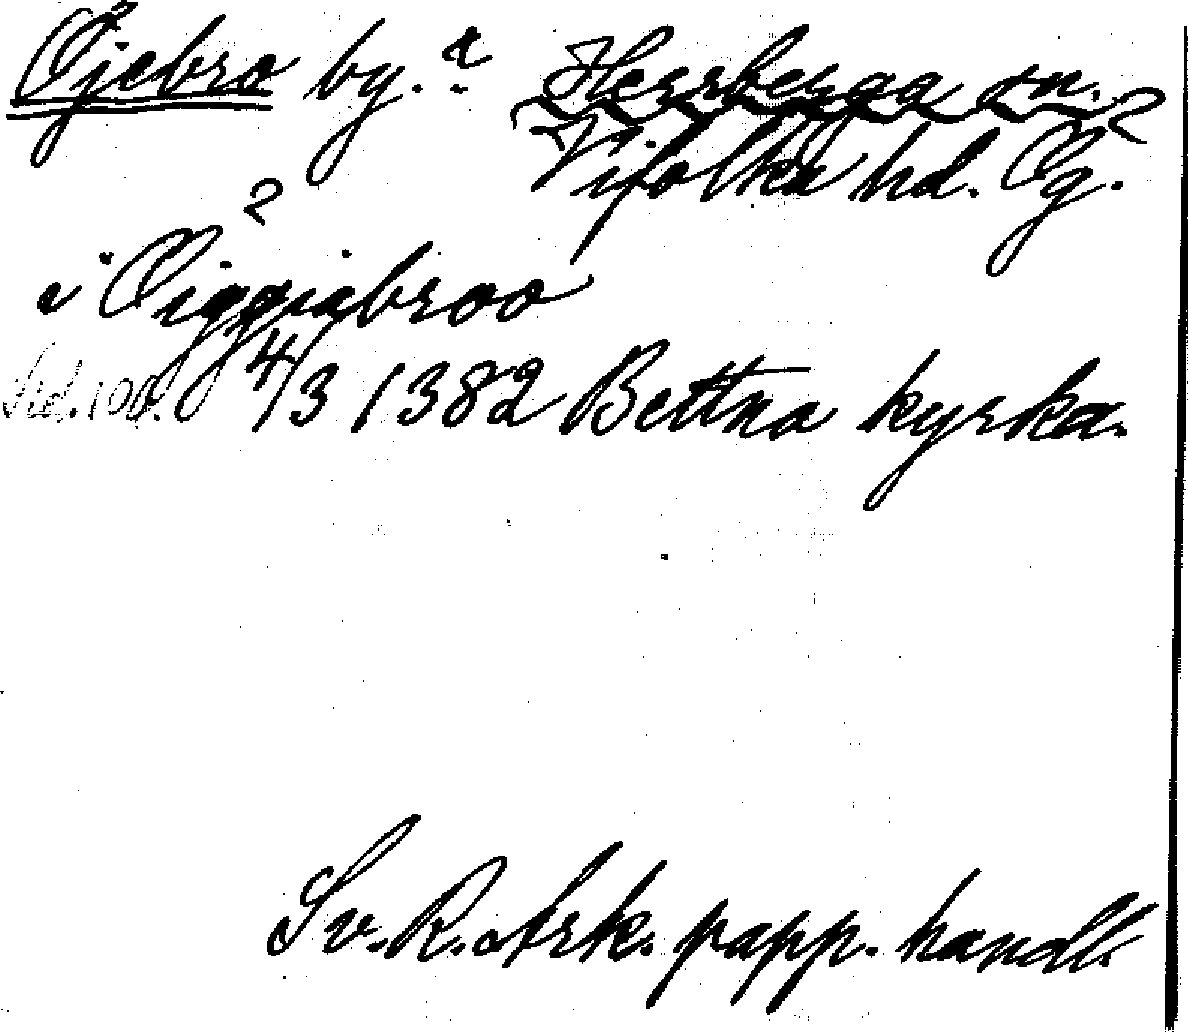 Öjebro by. a Herrberga sn.
Vifolka hd. Ög.
2
i Øiggiabroo
Sid. 100. 4/3 1382 Bettna kyrka.
Sv. R. Ark. papp. handl.